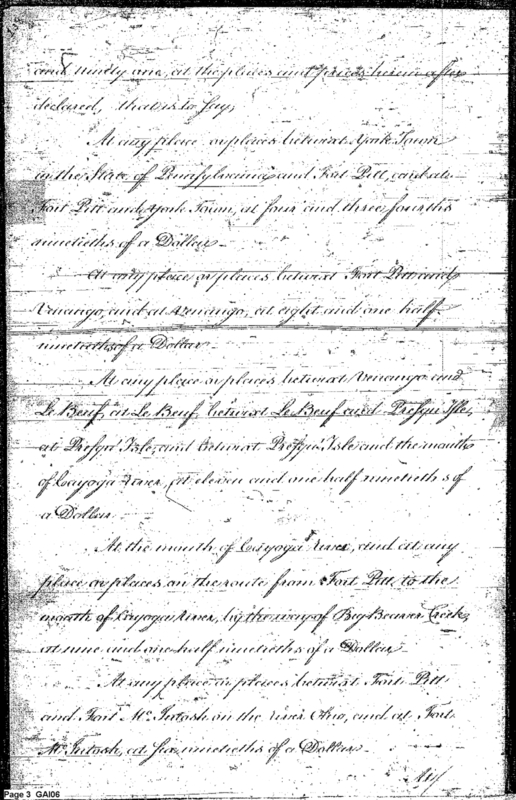 and Ninety one, at the places and prices herein after
declared, that is to say,
At any place or places betwixt York Town
in the State of Pennsylvania and Fort Pitt, and at
Fort Pitt and York Town, at four and three fourths
ninetieths of a Dollar
At any place or places betwixt Fort Pitt and
Venango, and at Venango, at eight and one half
ninetieths of a Dollar
At any place or places betwixt Venango and
Le Beuf, at Le Beuf, betwixt Le Beuf and Presqu' Isle,
at Presqu' Isle, and betwixt Presqu' Isle and the mouth
of Cayoga River, at eleven and one half ninetieths of
a Dollar
At the mouth of Cayoga River, and at any
place or places on the route from Fort Pitt to the
mouth of Cayoga River, by the way of Big Beaver Creek,
at nine and one half ninetieths of a Dollar
At any place or places betwixt Fort Pitt
and Fort Mc.Intosh on the river Ohio, and at Fort
Mc.Intosh, at six ninetieths of a Dollar
Page 3 GAI06